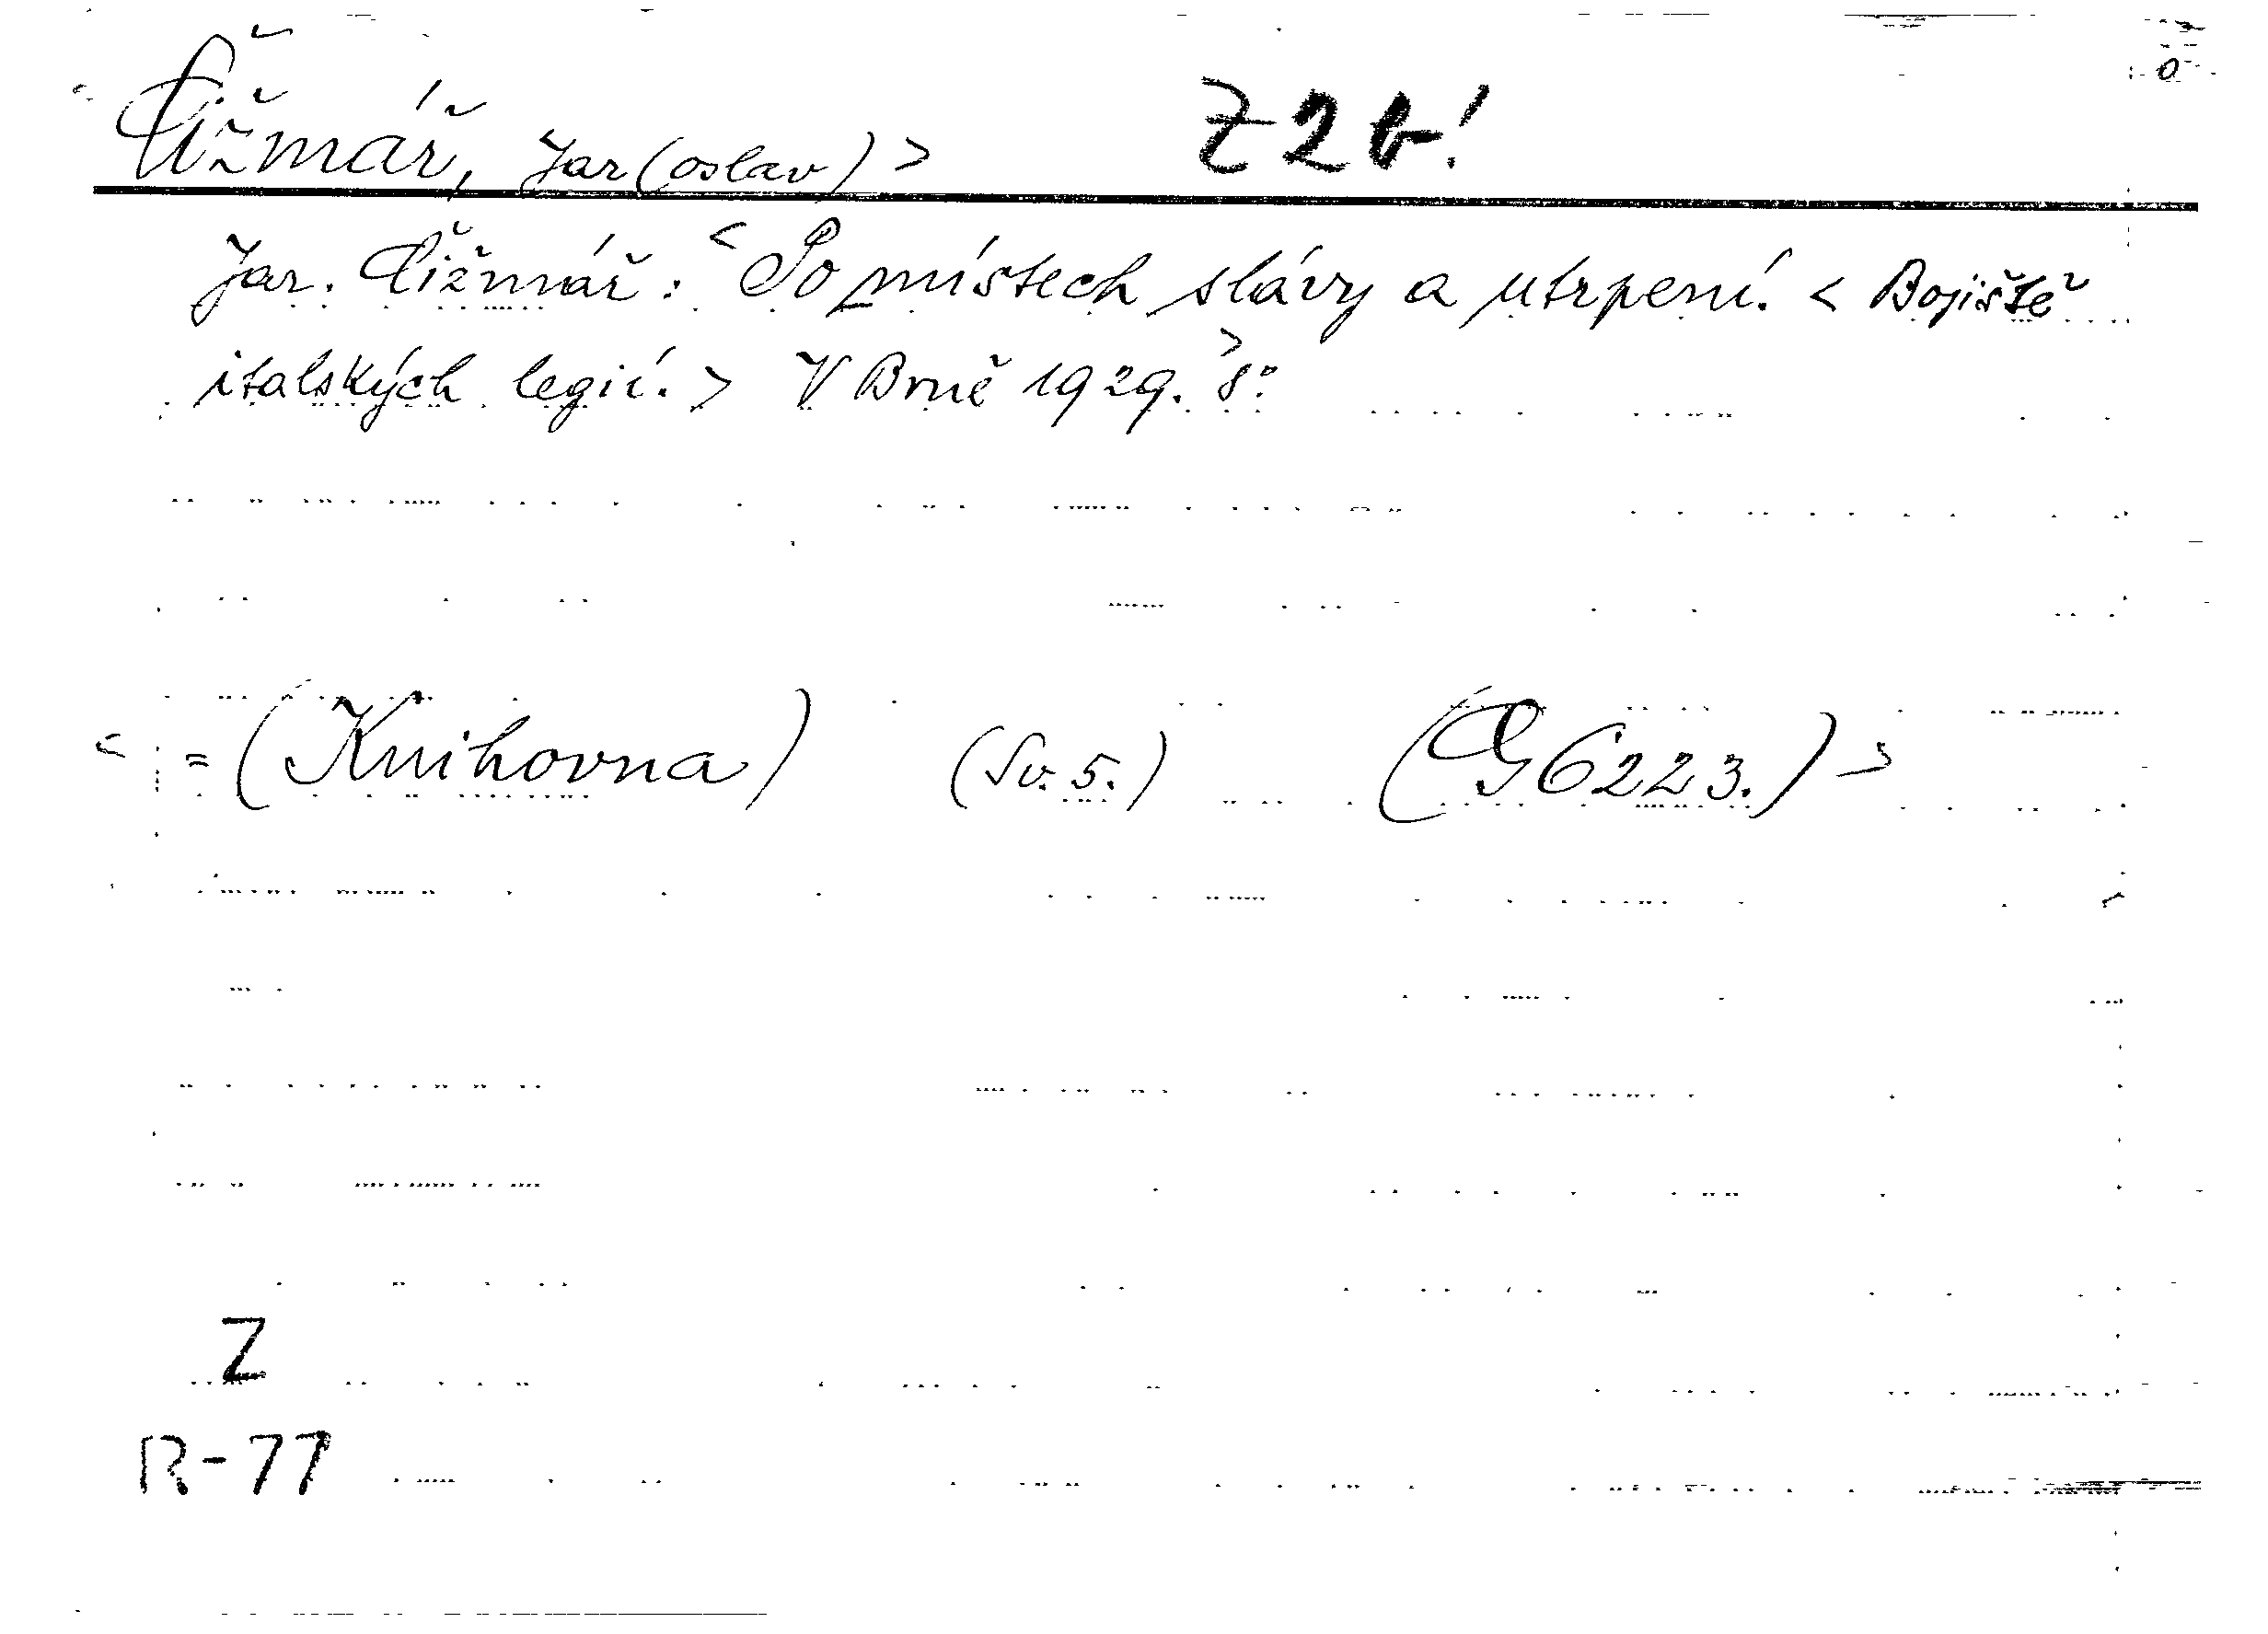 Čižmář, Jar(oslav) > Z 2 b!
Jar. Čižmář: < Po místech slávy a utrpení. < Bojiště
italských legií. > V Brně 1929. > 8°
< = (Knihovna) (Sv. 5.) (G 6223.) >
Z
R-77